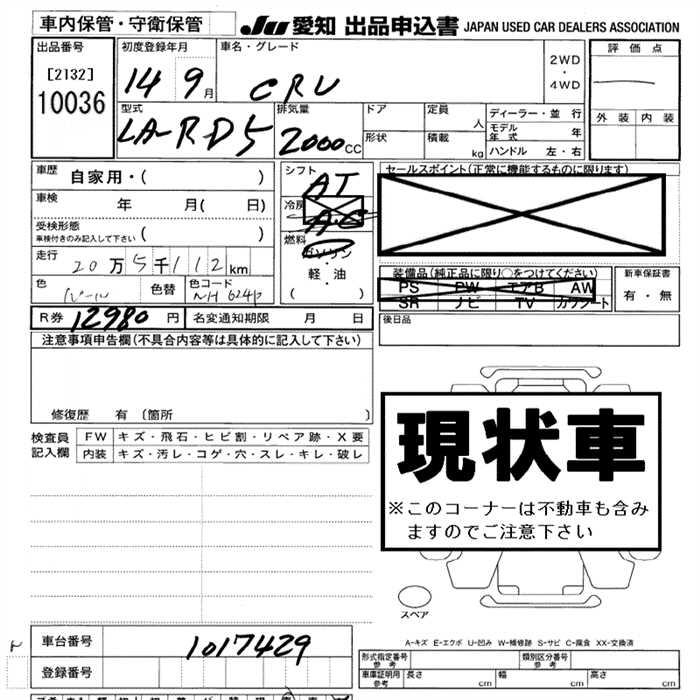 車内保管・守衛保管 JU 愛知 出品申込書 JAPAN USED CAR DEALERS ASSOCIATION
出品番号 初度登録年月 車名・グレード 評価点
[2132] 14 9月 CRV 2WD・4WD
10036 外装 内装
型式 排気量 ドア 定員 人 ディーラー・並行
LA-RD5 2000CC 形状 積載 kg モデル年式 年
ハンドル 左・右
車歴 自家用・( ) シフト AT セールスポイント(正常に機能するものに限ります)
車検 年 月( 日) 冷房 AC
受検形態 ( )
車検付きのみ記入して下さい
燃料 ガソリン・軽・油 ( )
走行 20万5千112km
装備品(純正品に限り○をつけてください) 新車保証書
色 パール 色替 色コード NH624P PS PW エアB AW 有・無
SR ナビ TV カワシート
R券 12980円 名変通知期限 月 日 後日品
注意事項申告欄(不具合内容等は具体的に記入して下さい)
修復歴 有 〔箇所 〕
現状車
※このコーナーは不動車も含み
ますのでご注意下さい
検査員 FW キズ・飛石・ヒビ割・リペア跡・X要
記入欄 内装 キズ・汚レ・コゲ・穴・スレ・キレ・破レ
スペア
A-キズ E-エクボ U-凹み W-補修跡 S-サビ C-腐食 XX-交換済
車台番号 1017429
型式指定番号 参考 類別区分番号 参考
登録番号 車庫証明用 参考 長さ 幅 高さ
cm cm cm